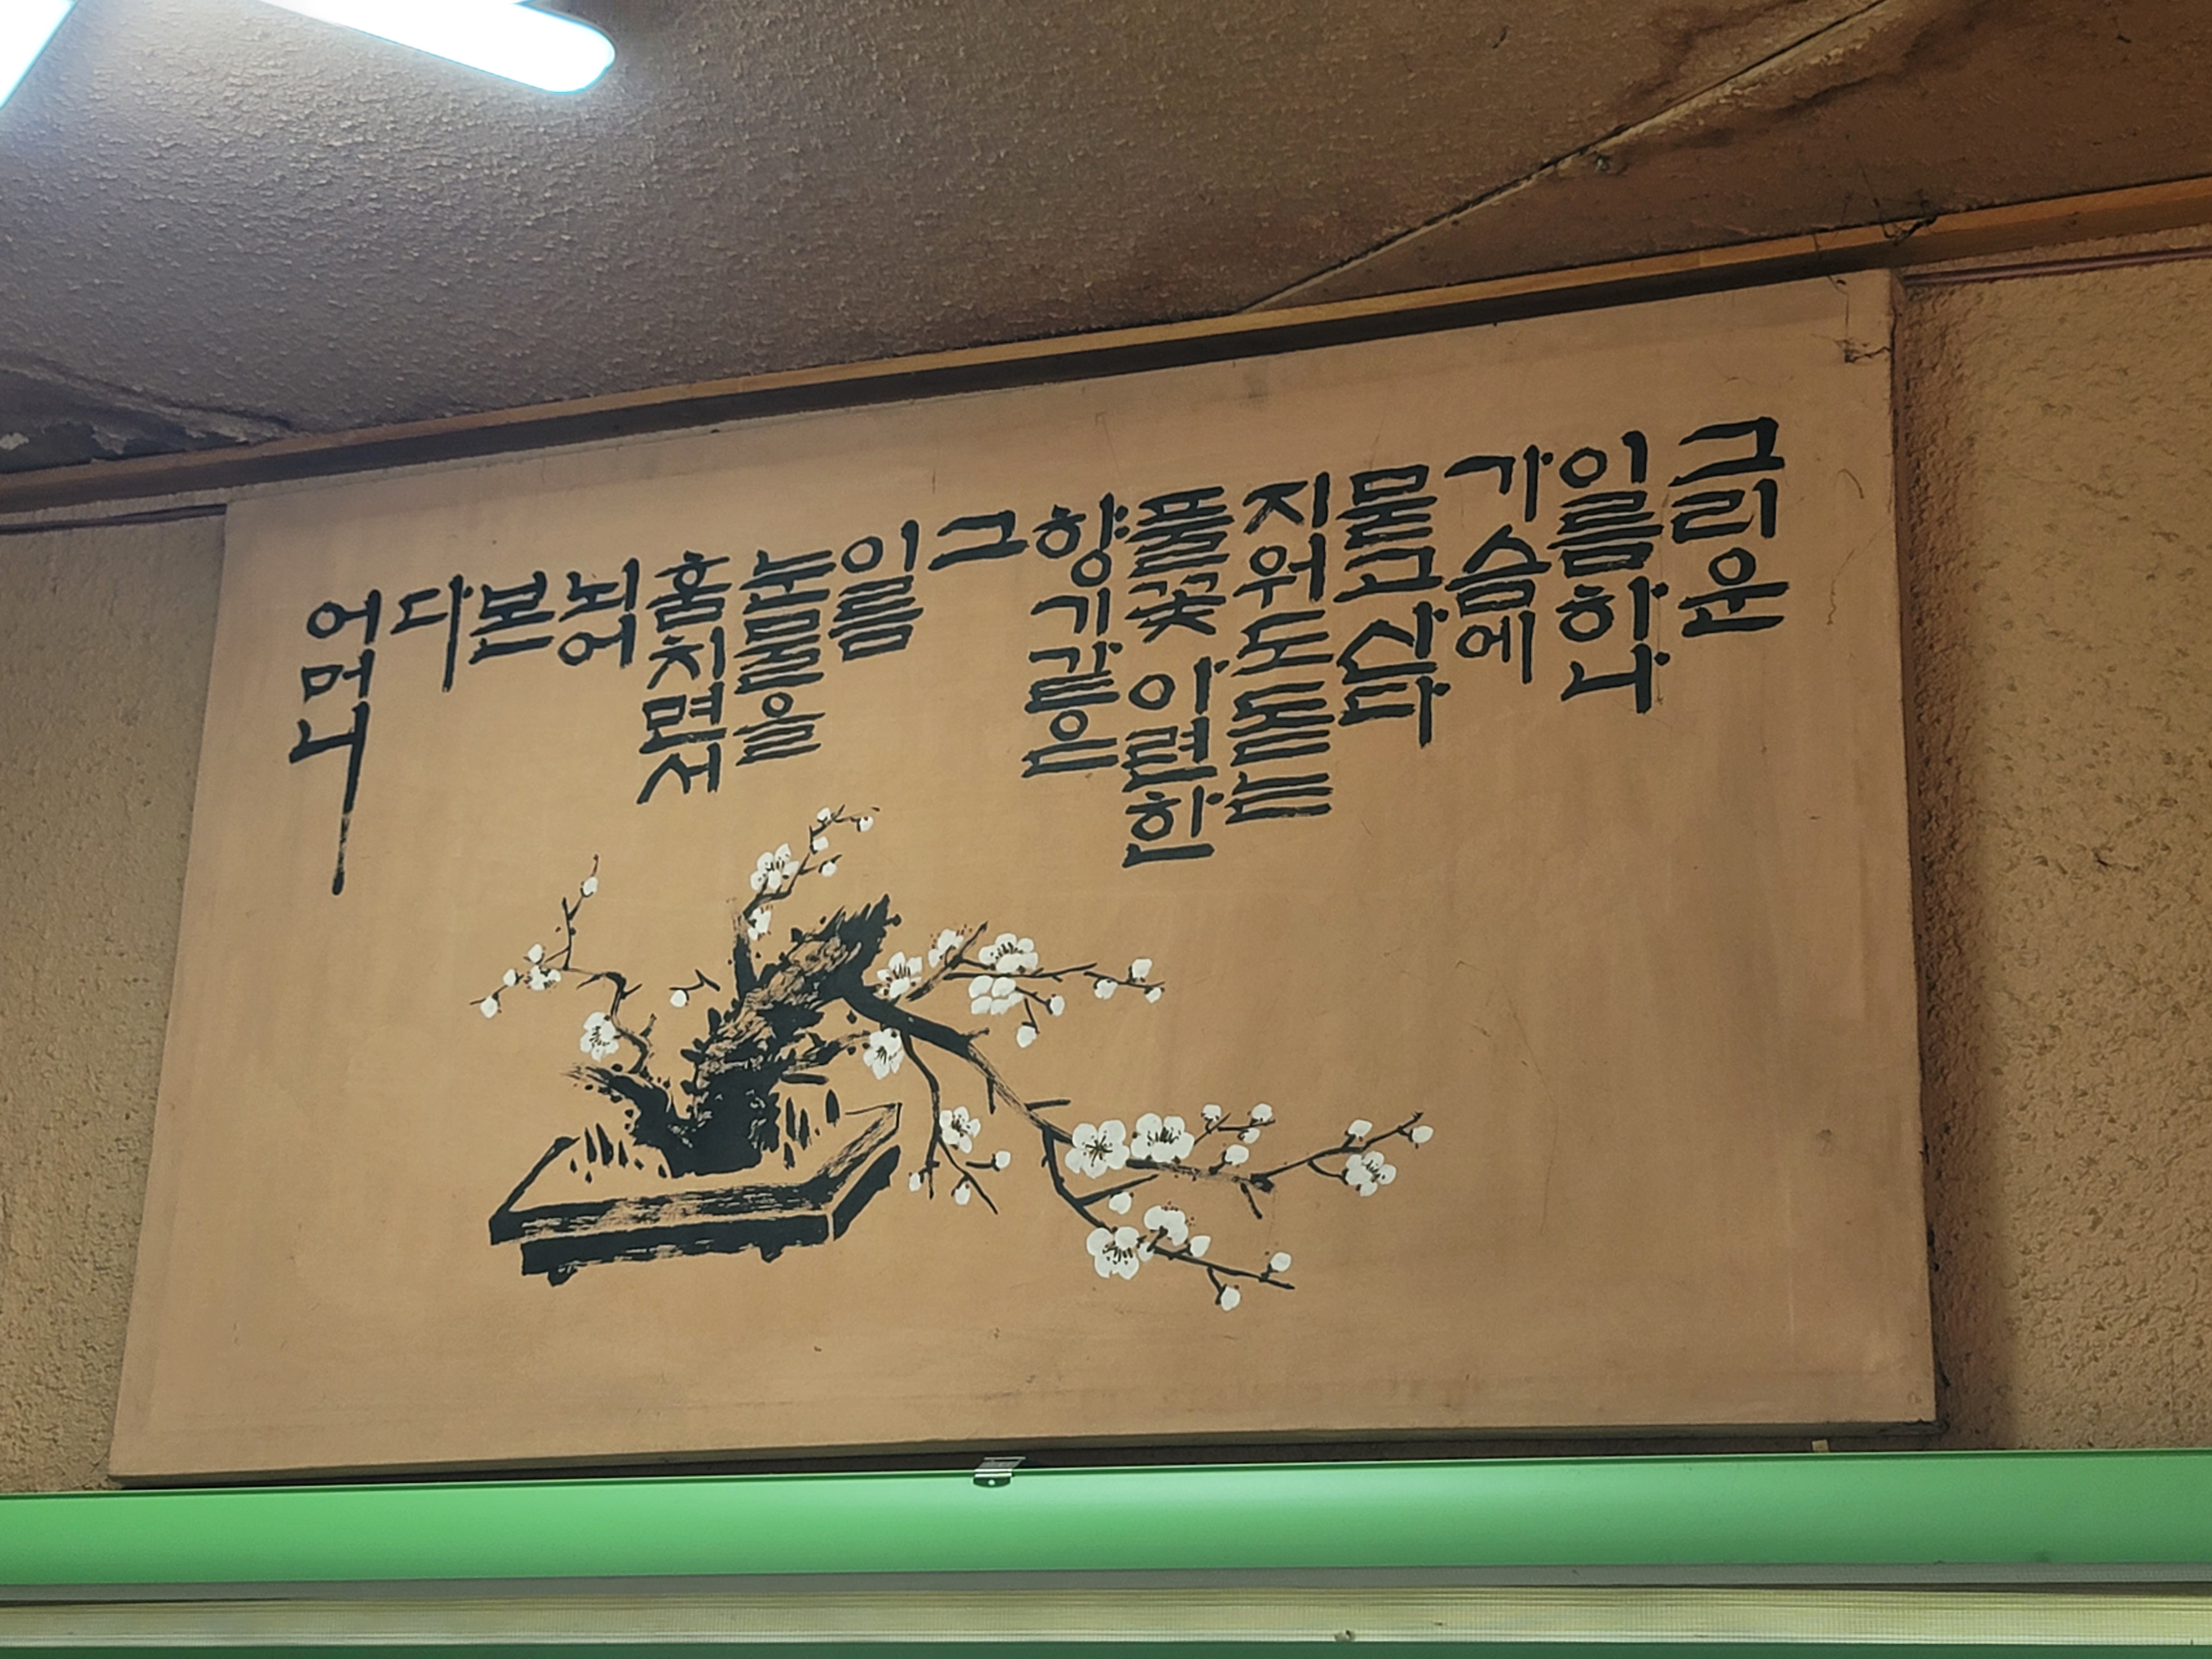 그리운
이름하나
가슴에
묻고산다
지워도돋는
풀꽃아련한
향기같은
그
이름
눈물을
훔치면서
뇌어
본
다
어머니